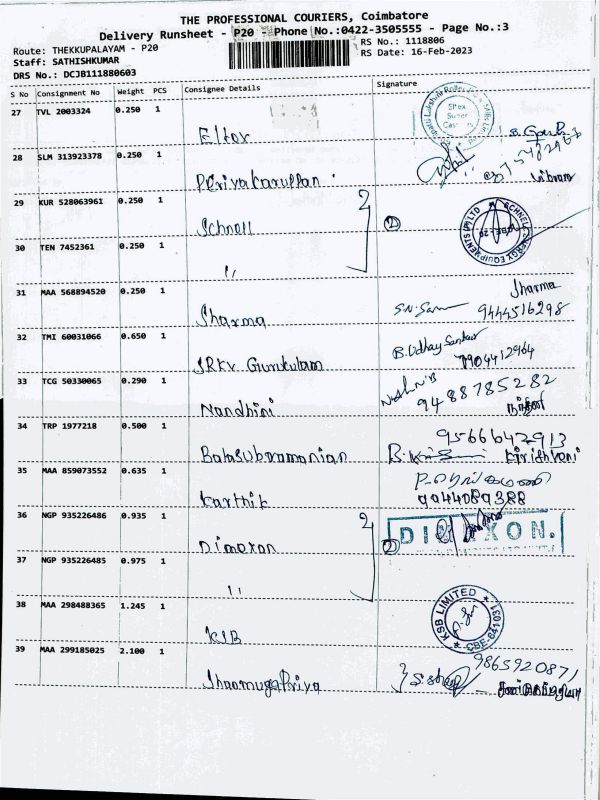 THE PROFESSIONAL COURIERS, Coimbatore
Delivery Runsheet - P20 - Phone No.:0422-3505555 - Page No.:3
Route: THEKKUPALAYAM - P20
RS No.: 1118806
Staff: SATHISHKUMAR
RS Date: 16-Feb-2023
DRS No.: DCJB111880603
S No Consignment No Weight PCS Consignee Details Signature
27 TVL 2003324 0.250 1
Eltor
28 SLM 313923378 0.250 1
Periyakaruppan Vikram
29 KUR 528063961 0.250 1
Schnell 2
30 TEN 7452361 0.250 1
"
31 MAA 568894520 0.250 1 Sharma
Sharma 9444516298
32 TMI 60031066 0.650 1 B. Udhay Sankar
SRKV. Gurukulam 7904412964
33 TCG 50330065 0.290 1
Nandhini 9488785282
34 TRP 1977218 0.500 1 9566642913
Balasubramanian
35 MAA 859073552 0.635 1
Karthik 9944089388
36 NGP 935226486 0.935 1
Dimexon 2 DIMEXON.
37 NGP 935226485 0.975 1
"
38 MAA 298488365 1.245 1 KSB LIMITED
KSB CBE-641031
39 MAA 299185025 2.100 1 9865920871
Shanmugapriya